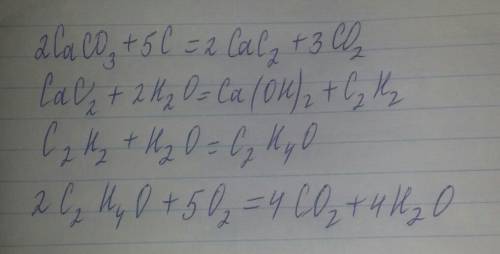 2CaCO₃ + 5C = 2CaC₂ + 3CO₂
CaC₂ + 2H₂O = Ca(OH)₂ + C₂H₂
C₂H₂ + H₂O = C₂H₄O
2C₂H₄O + 5O₂ = 4CO₂ + 4H₂O